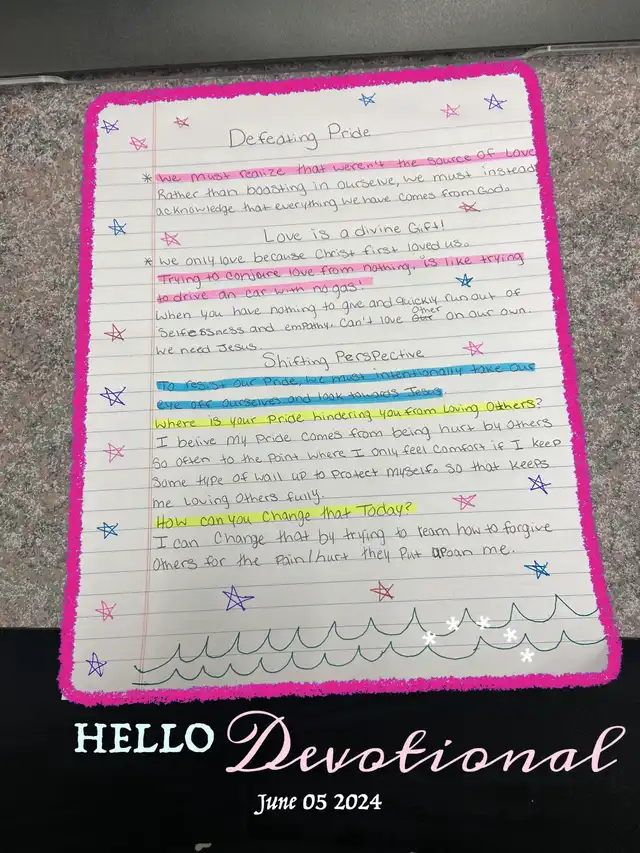 Defeating Pride
* We must realize that weren't the source of Love
Rather than boasting in ourselve, we must instead
acknowledge that everything we have comes from God.
Love is a divine Gift!
* We only love because Christ first loved us.
Trying to conjure love from nothing, is like trying
to drive an car with no gas!
When you have nothing to give and quickly run out of
Selflessness and empathy. Can't love Other on our own.
We need Jesus.
Shifting Perspective
To resist our Pride, we must intentionally take our
eye off ourselves and look towards Jesus.
Where is your Pride hindering you from Loving Others?
I belive my Pride comes from being hurt by others
So often to the point where I only feel comfort if I keep
Some type of wall up to protect myself. So that keeps
me Loving Others fully.
How can you Change that Today?
I can Change that by trying to learn how to forgive
Others for the Pain/hurt they Put upoan me.
HELLO Devotional
June 05 2024